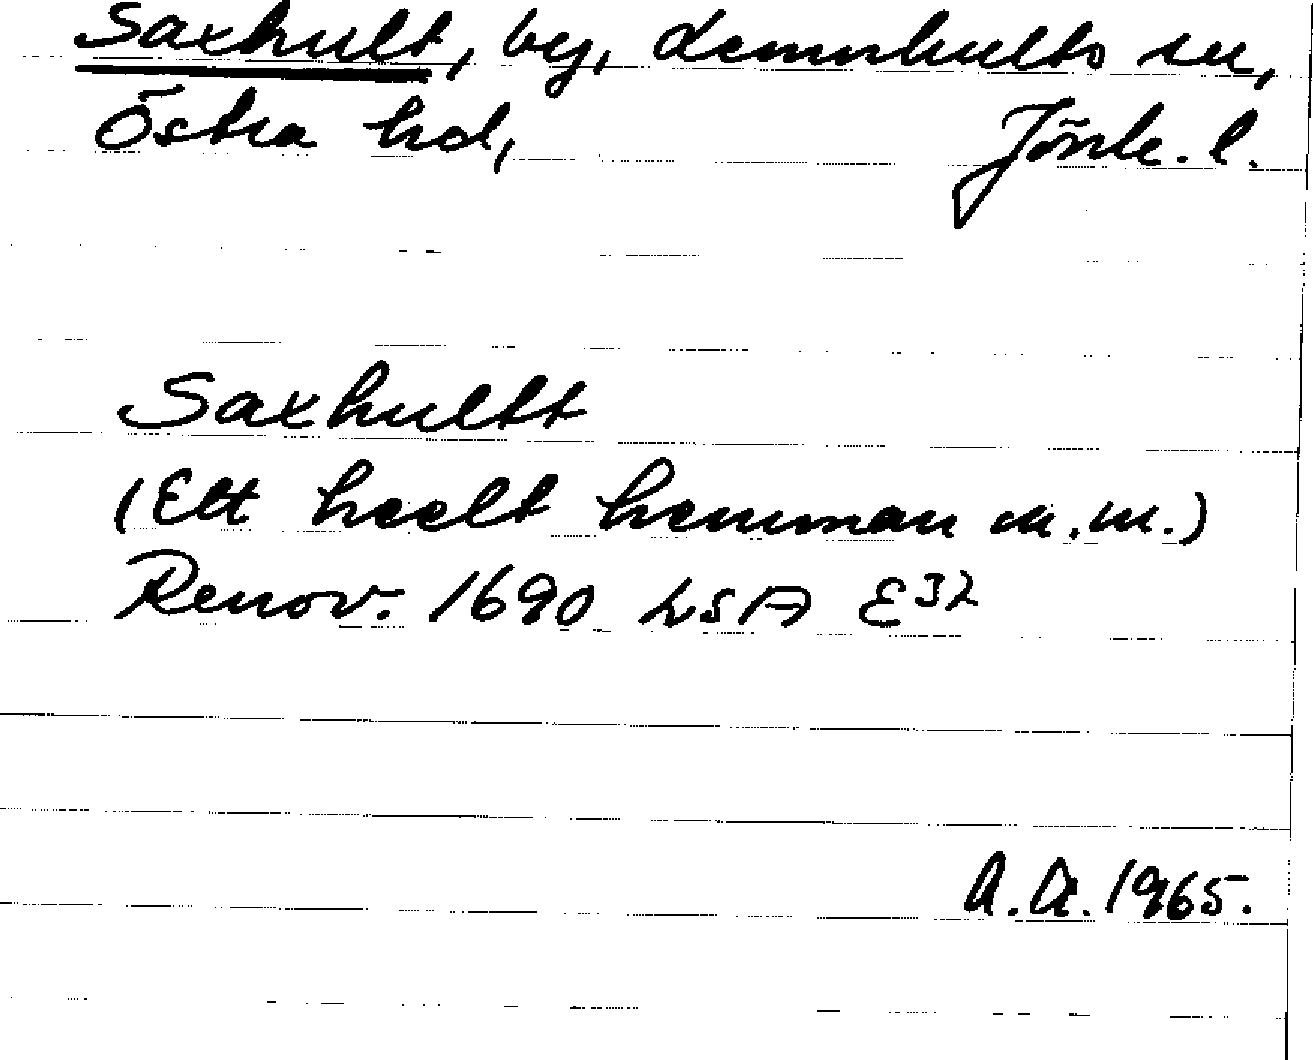 Saxhult, by, Lemnhults sn,
Östra hd, Jönk. l.
Saxhultt
(Ett heelt hemman m.m.)
Renov. 1690 LSA E32
A.A. 1965.